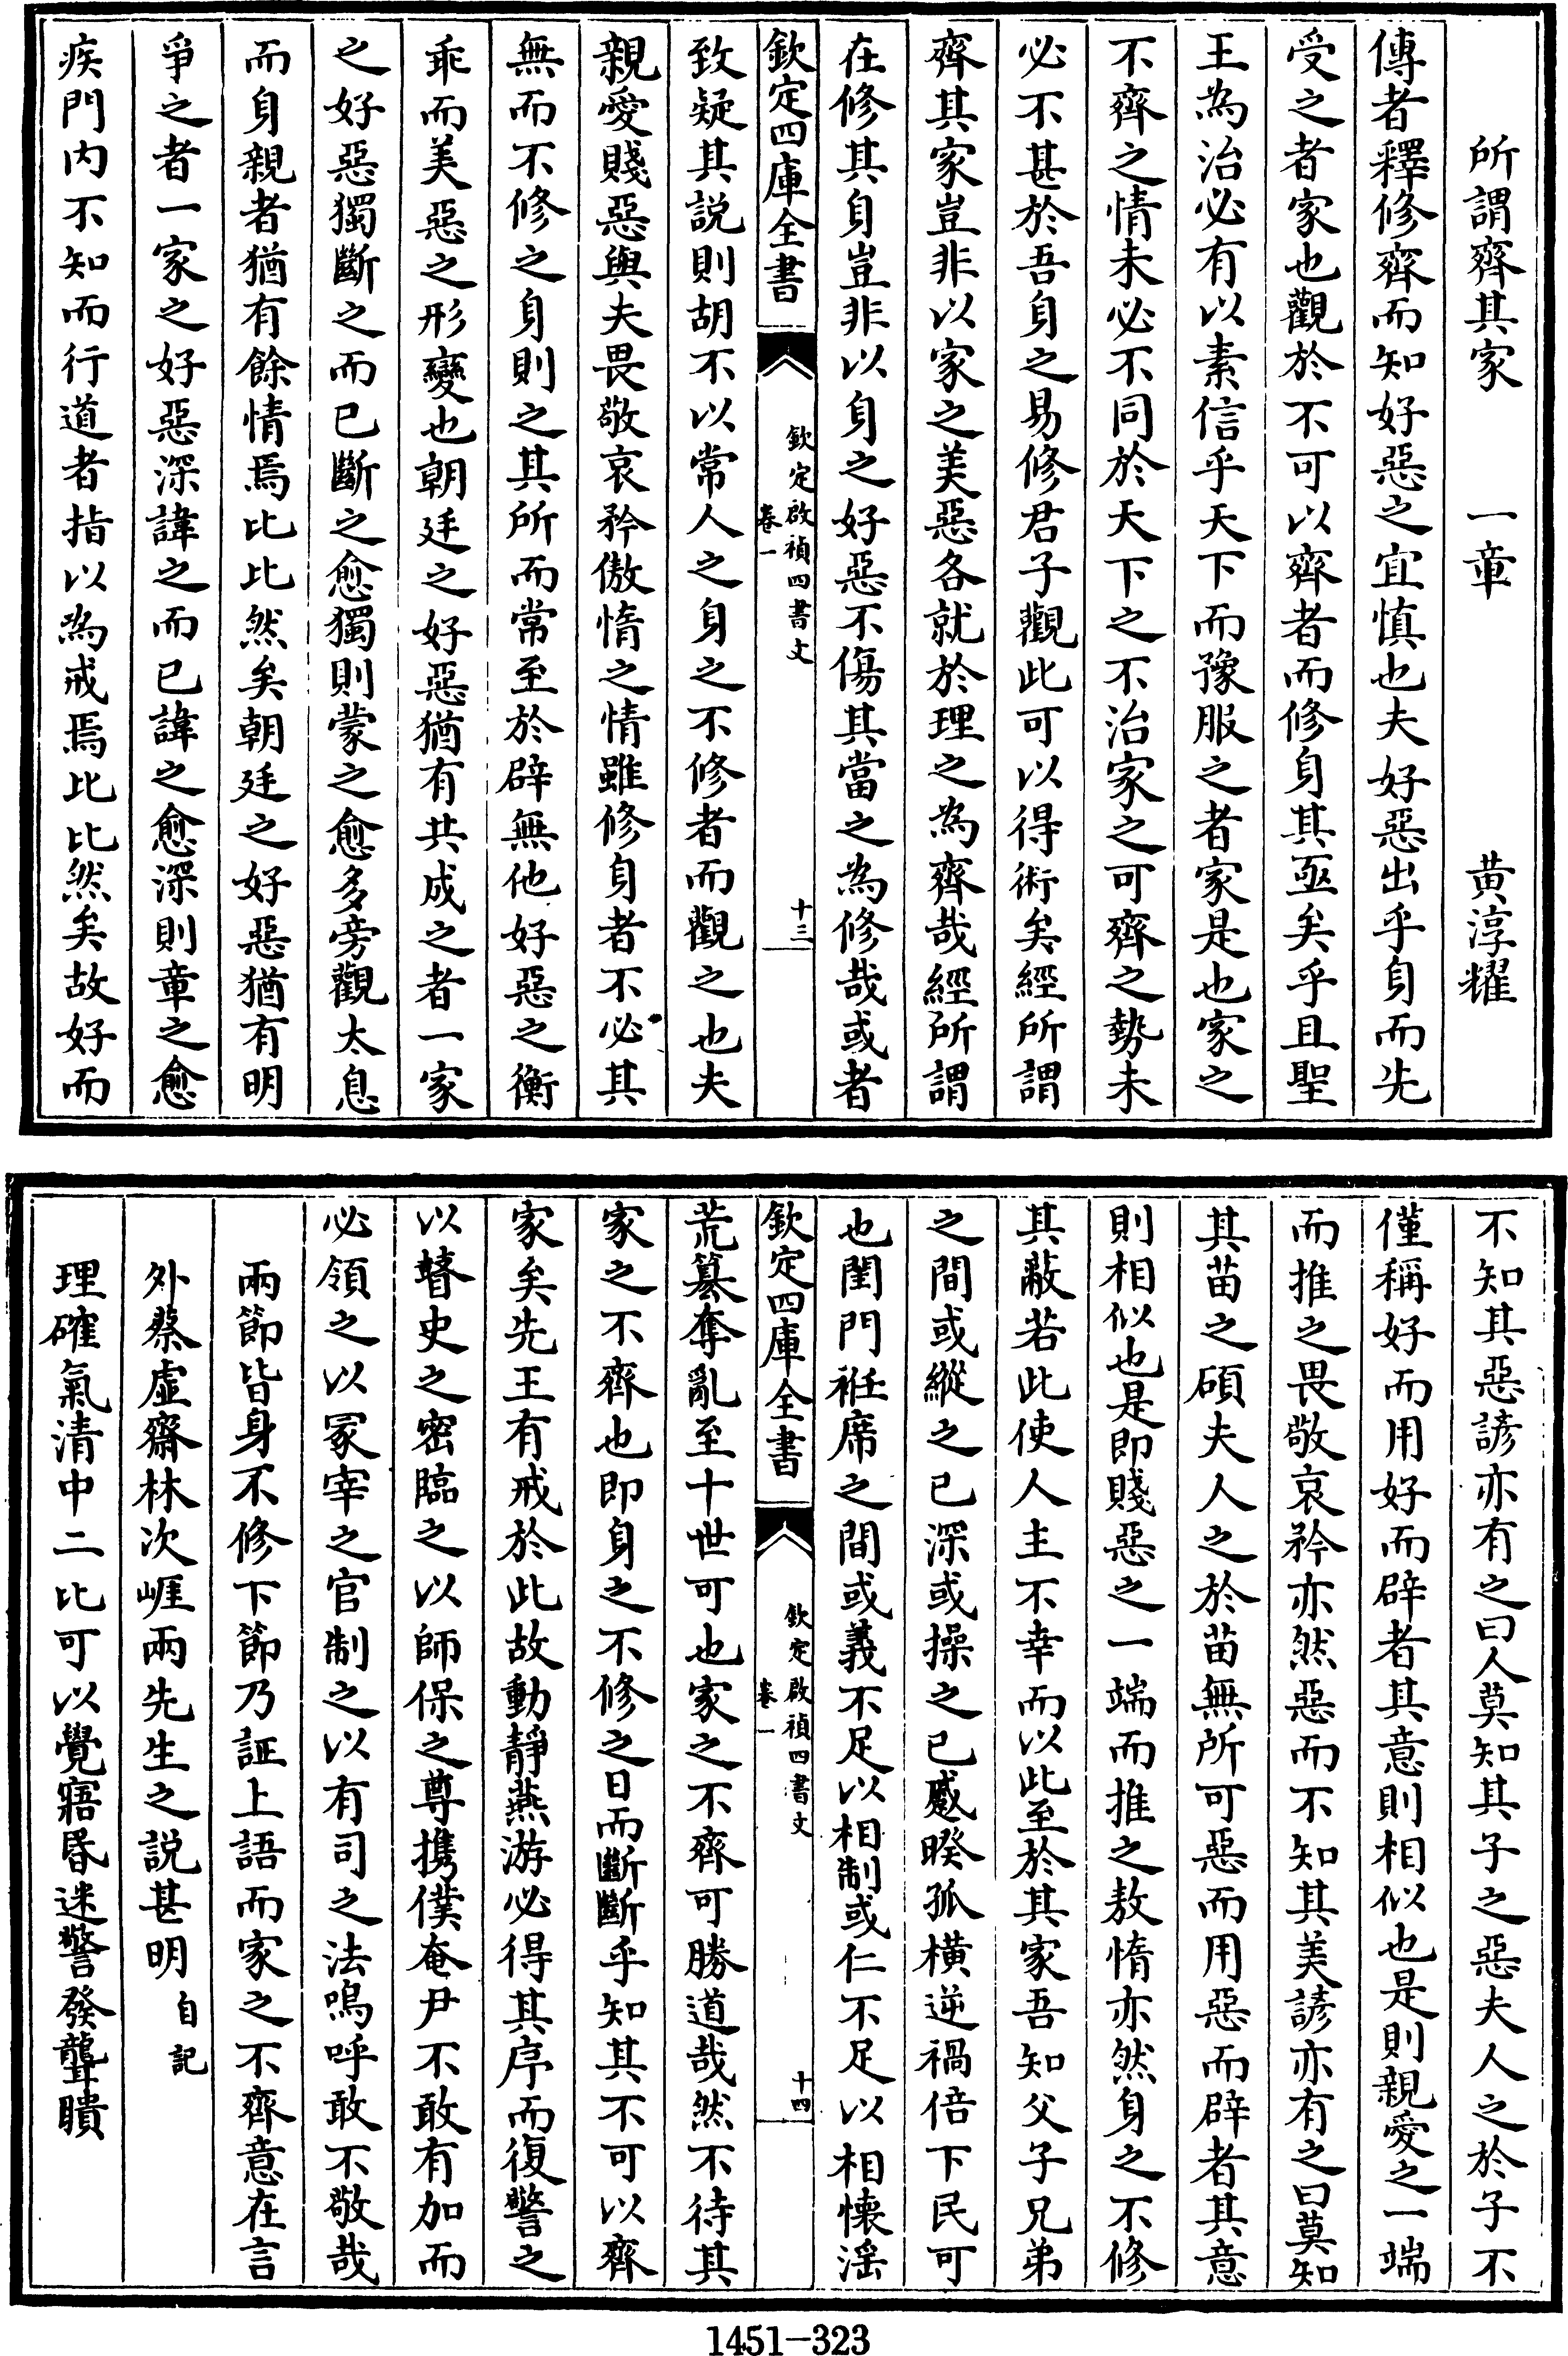 所謂齊其家　一章　黄淳耀
傳者釋修齊而知好惡之宜慎也夫好惡出乎身而先
受之者家也觀於不可以齊者而修身其亟矣乎且聖
王為治必有以素信乎天下而豫服之者家是也家之
不齊之情未必不同於天下之不治家之可齊之勢未
必不甚於吾身之易修君子觀此可以得術矣經所謂
齊其家豈非以家之美惡各就於理之為齊哉經所謂
在修其身豈非以身之好惡不傷其當之為修哉或者
欽定四庫全書
欽定啟禎四書文
卷一
十三
致疑其説則胡不以常人之身之不修者而觀之也夫
親愛賤惡與夫畏敬哀矜傲惰之情雖修身者不必其
無而不修之身則之其所而常至於辟無他好惡之衡
乖而美惡之形變也朝廷之好惡猶有共成之者一家
之好惡獨斷之而已斷之愈獨則蒙之愈多旁觀太息
而身親者猶有餘情焉比比然矣朝廷之好惡猶有明
爭之者一家之好惡深諱之而已諱之愈深則章之愈
疾門内不知而行道者指以為戒焉比比然矣故好而
不知其惡諺亦有之曰人莫知其子之惡夫人之於子不
僅稱好而用好而辟者其意則相似也是則親愛之一端
而推之畏敬哀矜亦然惡而不知其美諺亦有之曰莫知
其苗之碩夫人之於苗無所可惡而用惡而辟者其意
則相似也是即賤惡之一端而推之敖惰亦然身之不修
其蔽若此使人主不幸而以此至於其家吾知父子兄弟
之間或縱之已深或操之已蹙睽孤橫逆禍倍下民可
也閨門袵席之間或義不足以相制或仁不足以相懐滛
欽定四庫全書
欽定啟禎四書文
卷一
十四
荒簒奪亂至十世可也家之不齊可勝道哉然不待其
家之不齊也即身之不修之日而斷斷乎知其不可以齊
家矣先王有戒於此故動靜燕游必得其序而復警之
以瞽史之密臨之以師保之尊攜僕奄尹不敢有加而
必領之以冢宰之官制之以有司之法嗚呼敢不敬哉
兩節皆身不修下節乃証上語而家之不齊意在言
外蔡虚齋林次崕兩先生之説甚明　自記
理確氣清中二比可以覺寤昬迷警發聾聵
1451-323